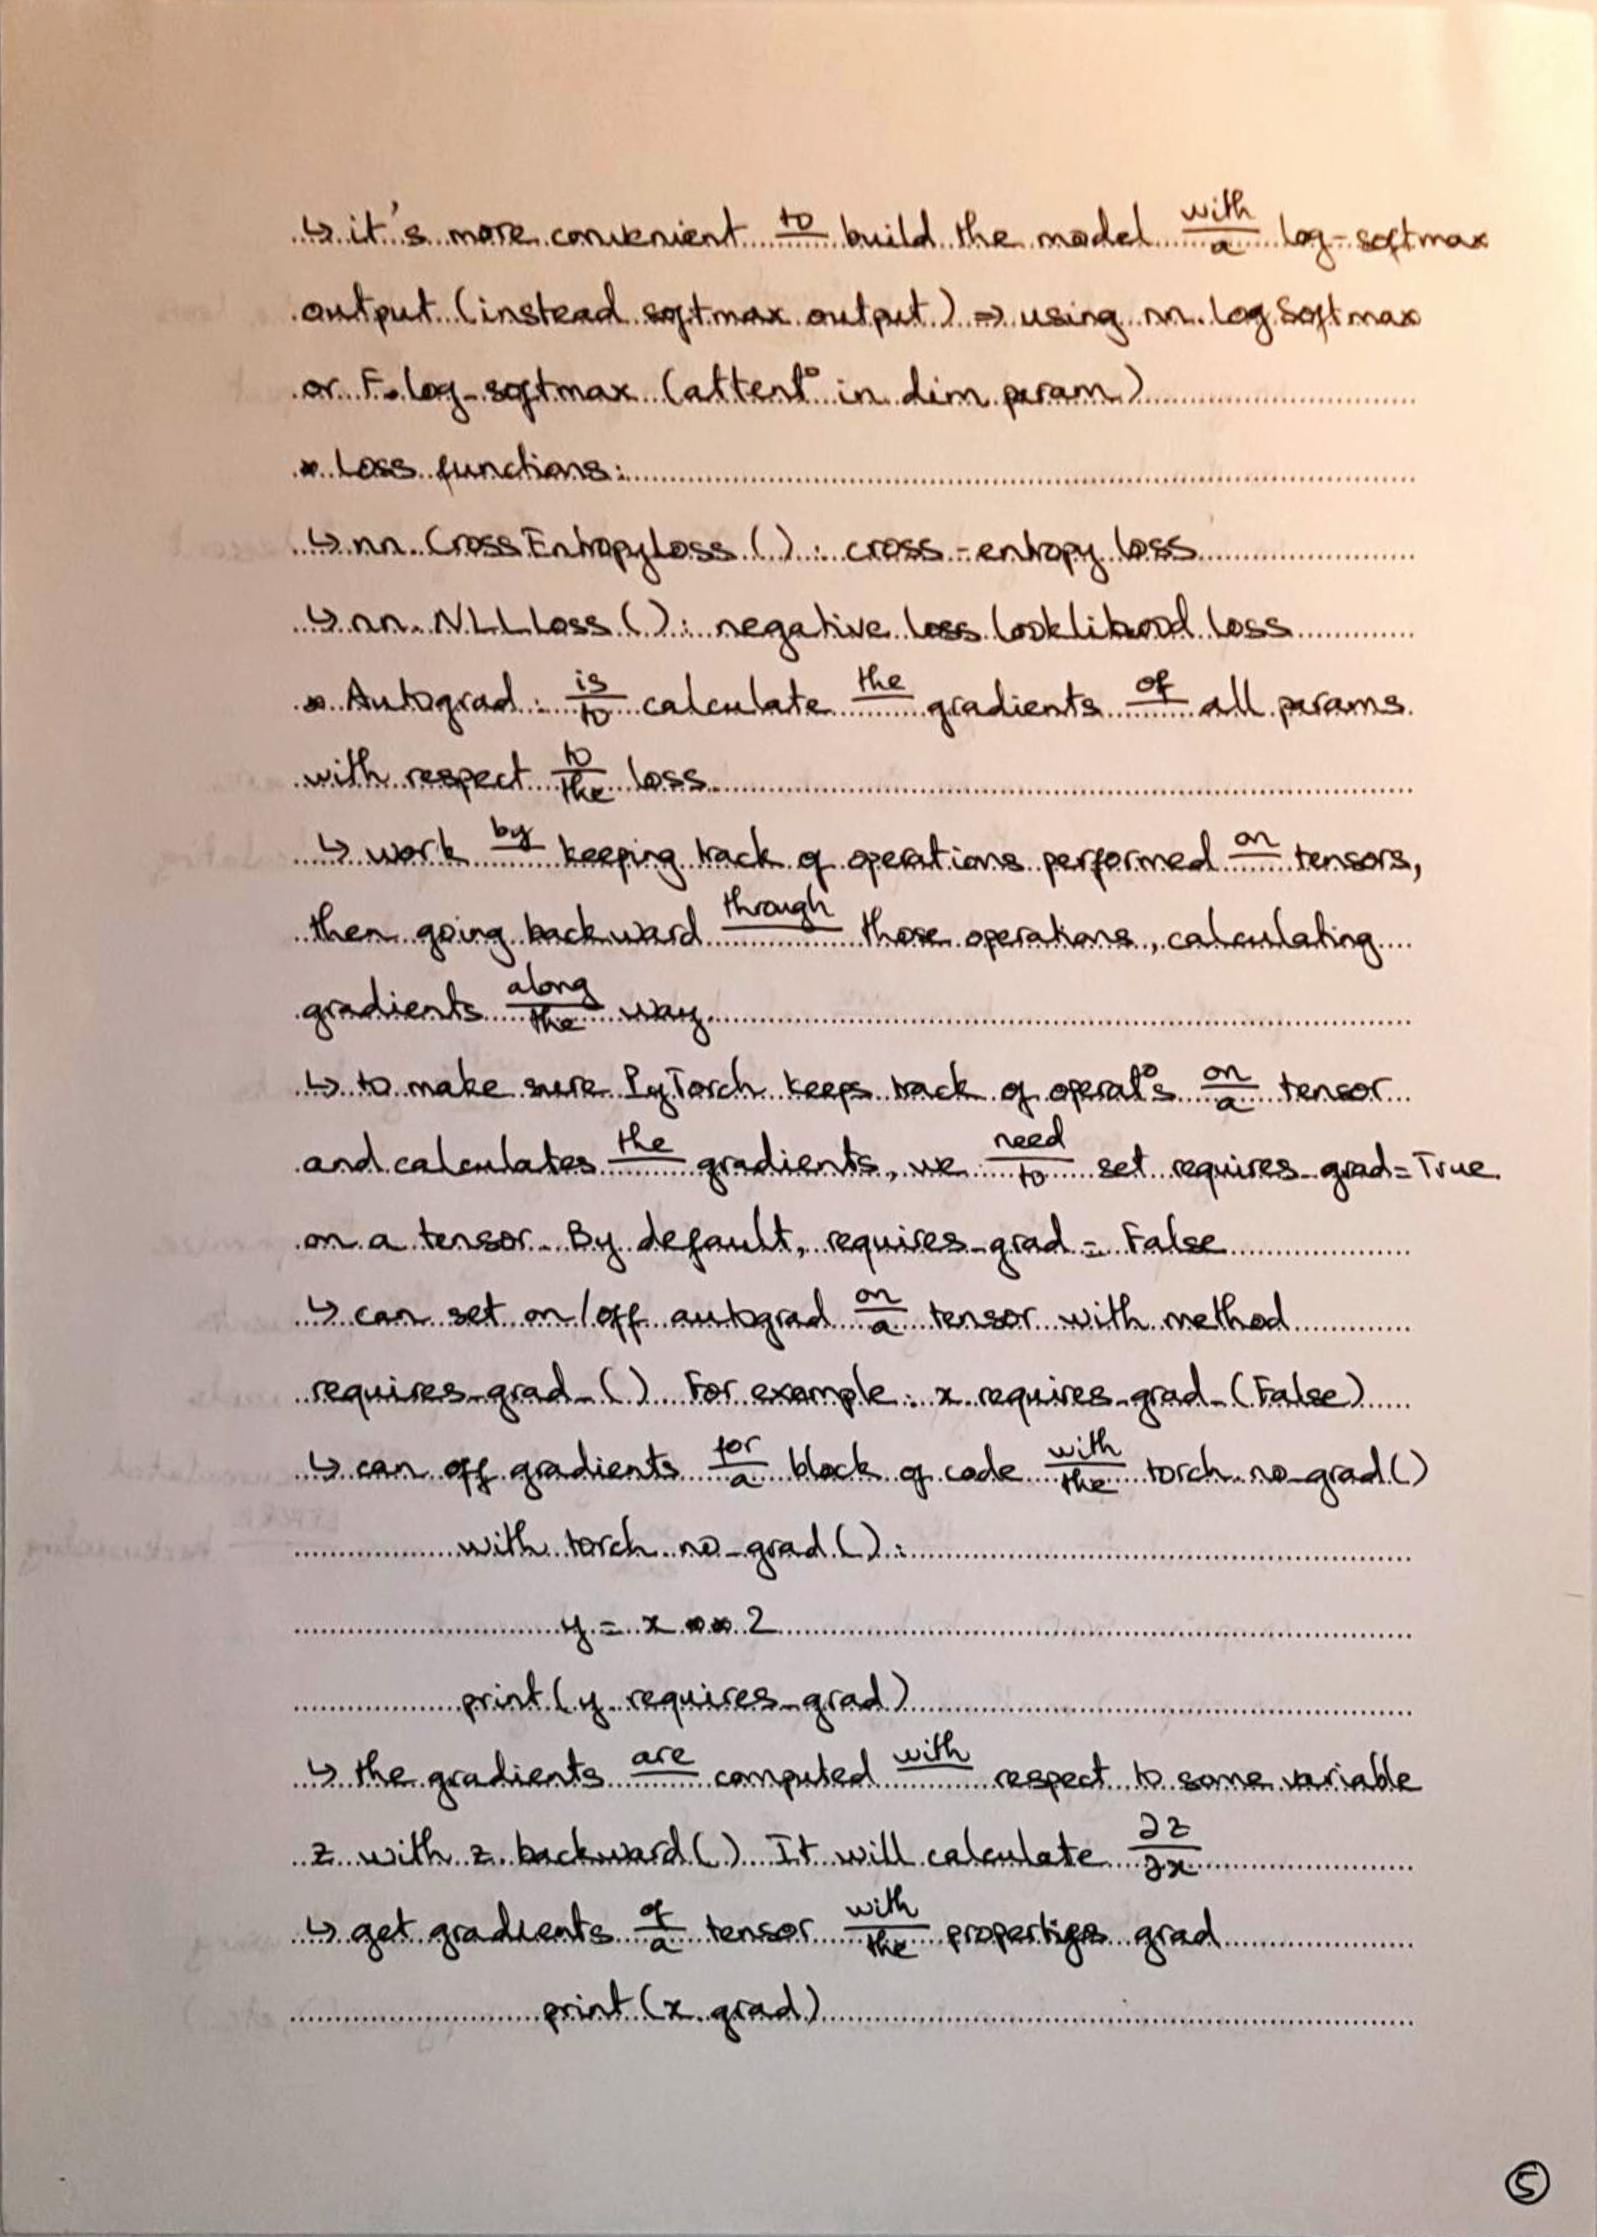 ↳ it's more convenient to build the model with a log-softmax
output (instead softmax output) ⇒ using nn.LogSoftmax
or F.log_softmax (attent° in dim param)
* Loss functions:
↳ nn.CrossEntropyLoss(): cross-entropy loss
↳ nn.NLLLoss(): negative loss looklihood loss
* Autograd: is to calculate the gradients of all params
with respect to the loss
↳ work by keeping track of operations performed on tensors,
then going backward through those operations, calculating
gradients along the way.
↳ to make sure PyTorch keeps track of operat°s on a tensor
and calculates the gradients, we need to set requires_grad=True
on a tensor. By default, requires_grad = False
↳ can set on/off autograd on a tensor with method
requires_grad_(). For example: x.requires_grad_(False)
↳ can off gradients for a block of code with the torch.no_grad()
with torch.no_grad():
y = x ** 2
print(y.requires_grad)
↳ the gradients are computed with respect to some variable
z with z.backward(). It will calculate ∂z/∂x
↳ get gradients of a tensor with the properties grad
print(x.grad)
5